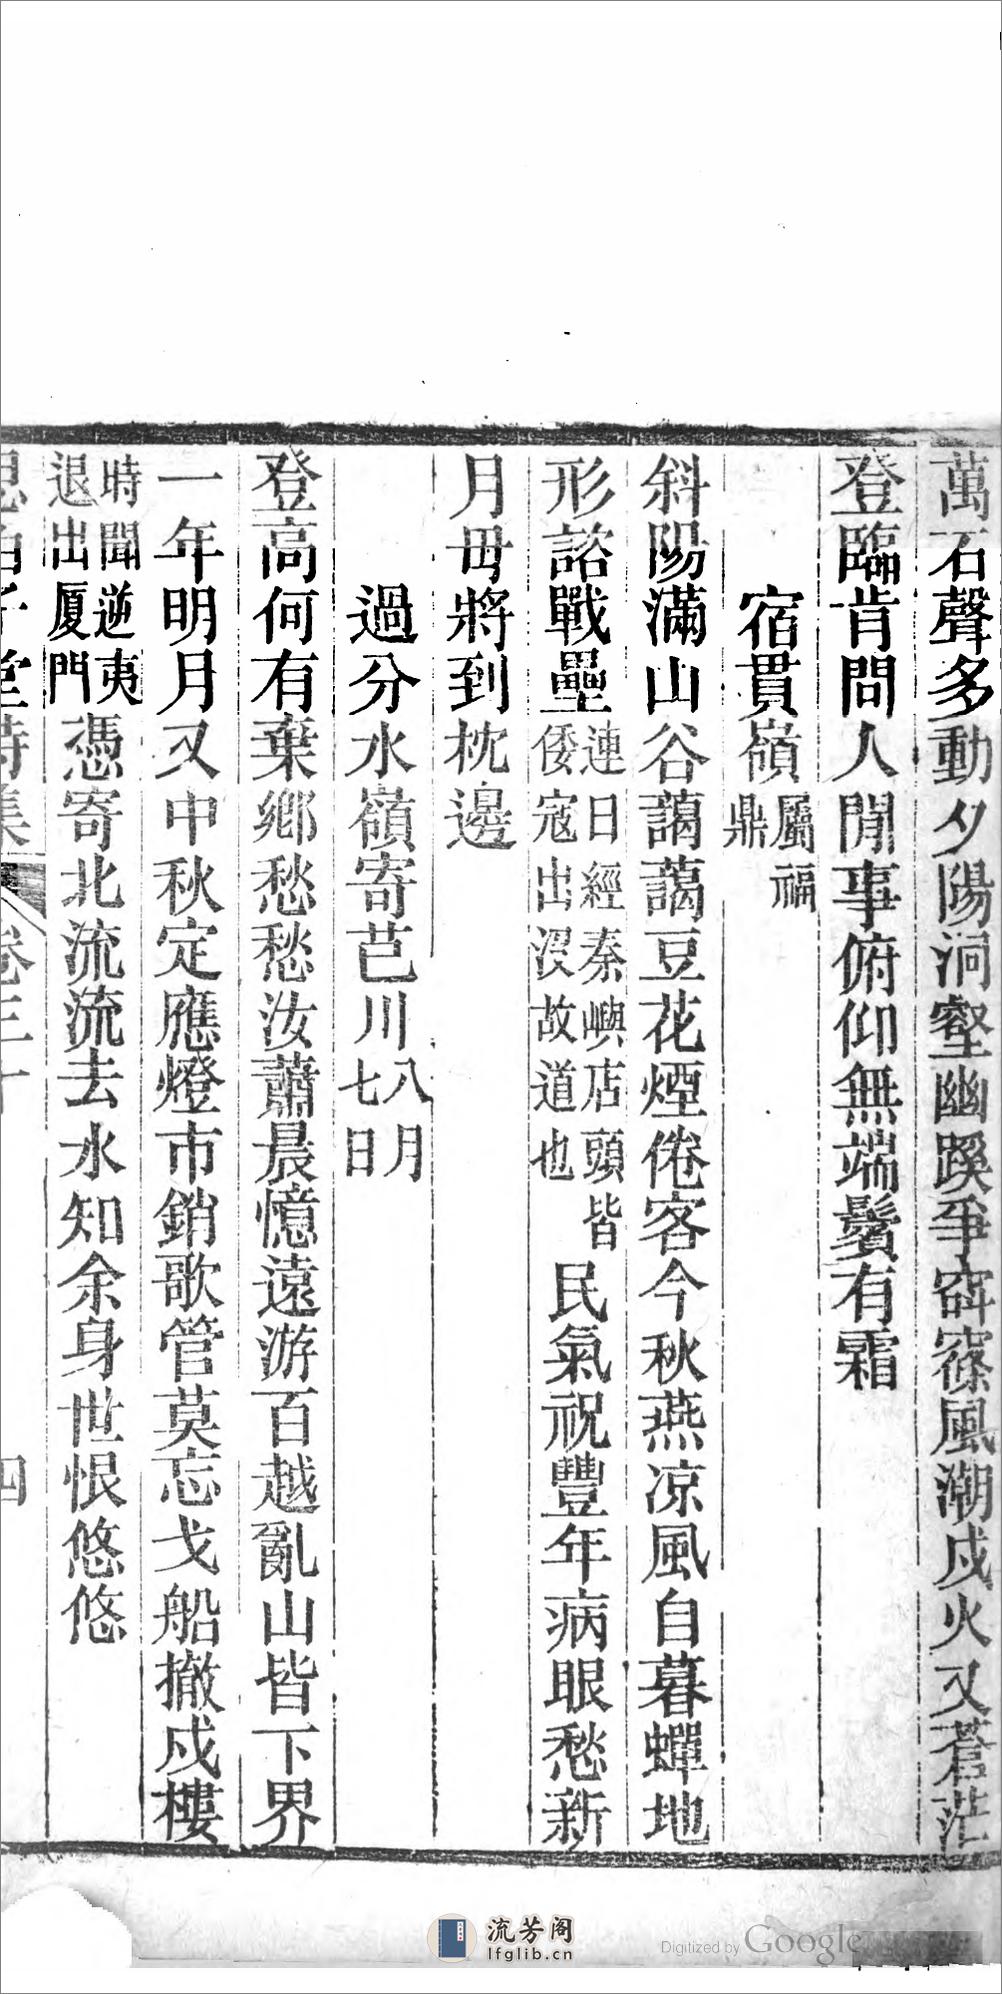 萬石聲多動夕陽洞壑幽蹊爭窱篠風潮戍火又蒼茫
登臨肯問人閒事俯仰無端鬢有霜
宿貫嶺屬福鼎
斜陽滿山谷藹藹豆花煙倦客今秋燕凉風自暮蟬地
形諮戰壘連日經秦嶼店頭皆倭寇出沒故道也民氣祝豐年病眼愁新
月毋將到枕邊
過分水嶺寄芑川八月七日
登高何有棄鄉愁愁汝蕭晨憶遠游百越亂山皆下界
一年明月又中秋定應燈市銷歌管莫忘戈船撤戍樓
時聞逆夷退出厦門憑寄北流流去水知余身世恨悠悠
思伯子堂詩集 卷三十 四
流芳阁
lfglib.cn
Digitized by Google